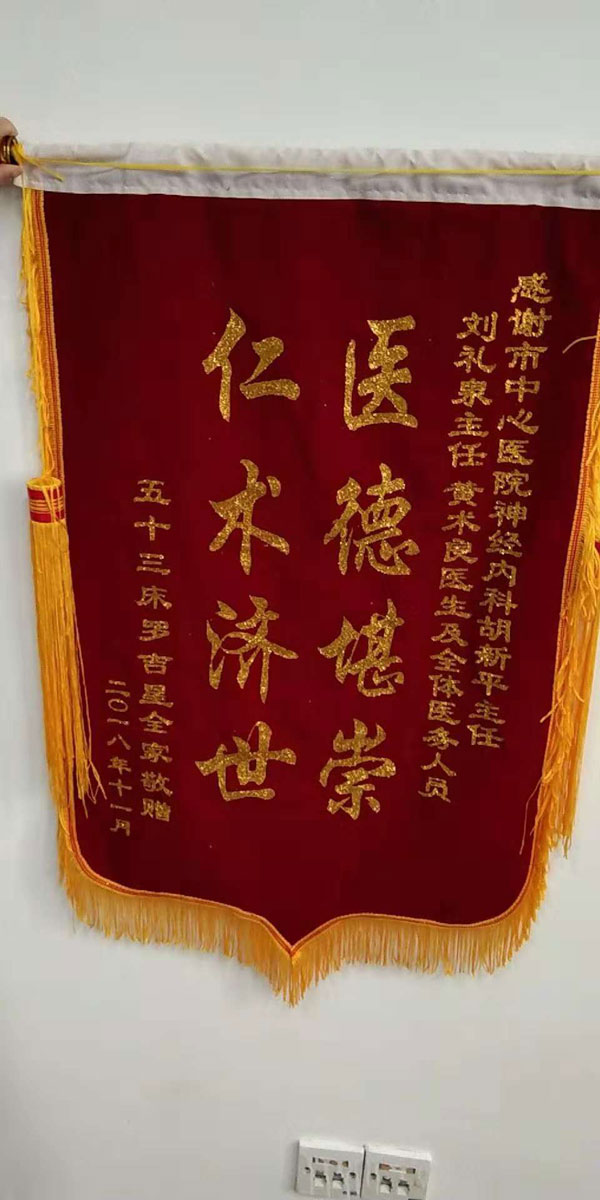 感谢市中心医院神经内科胡新平主任
刘礼泉主任 黄术良医生及全体医务人员
医德堪崇
仁术济世
五十三床罗吉星全家敬赠
二〇一八年十一月